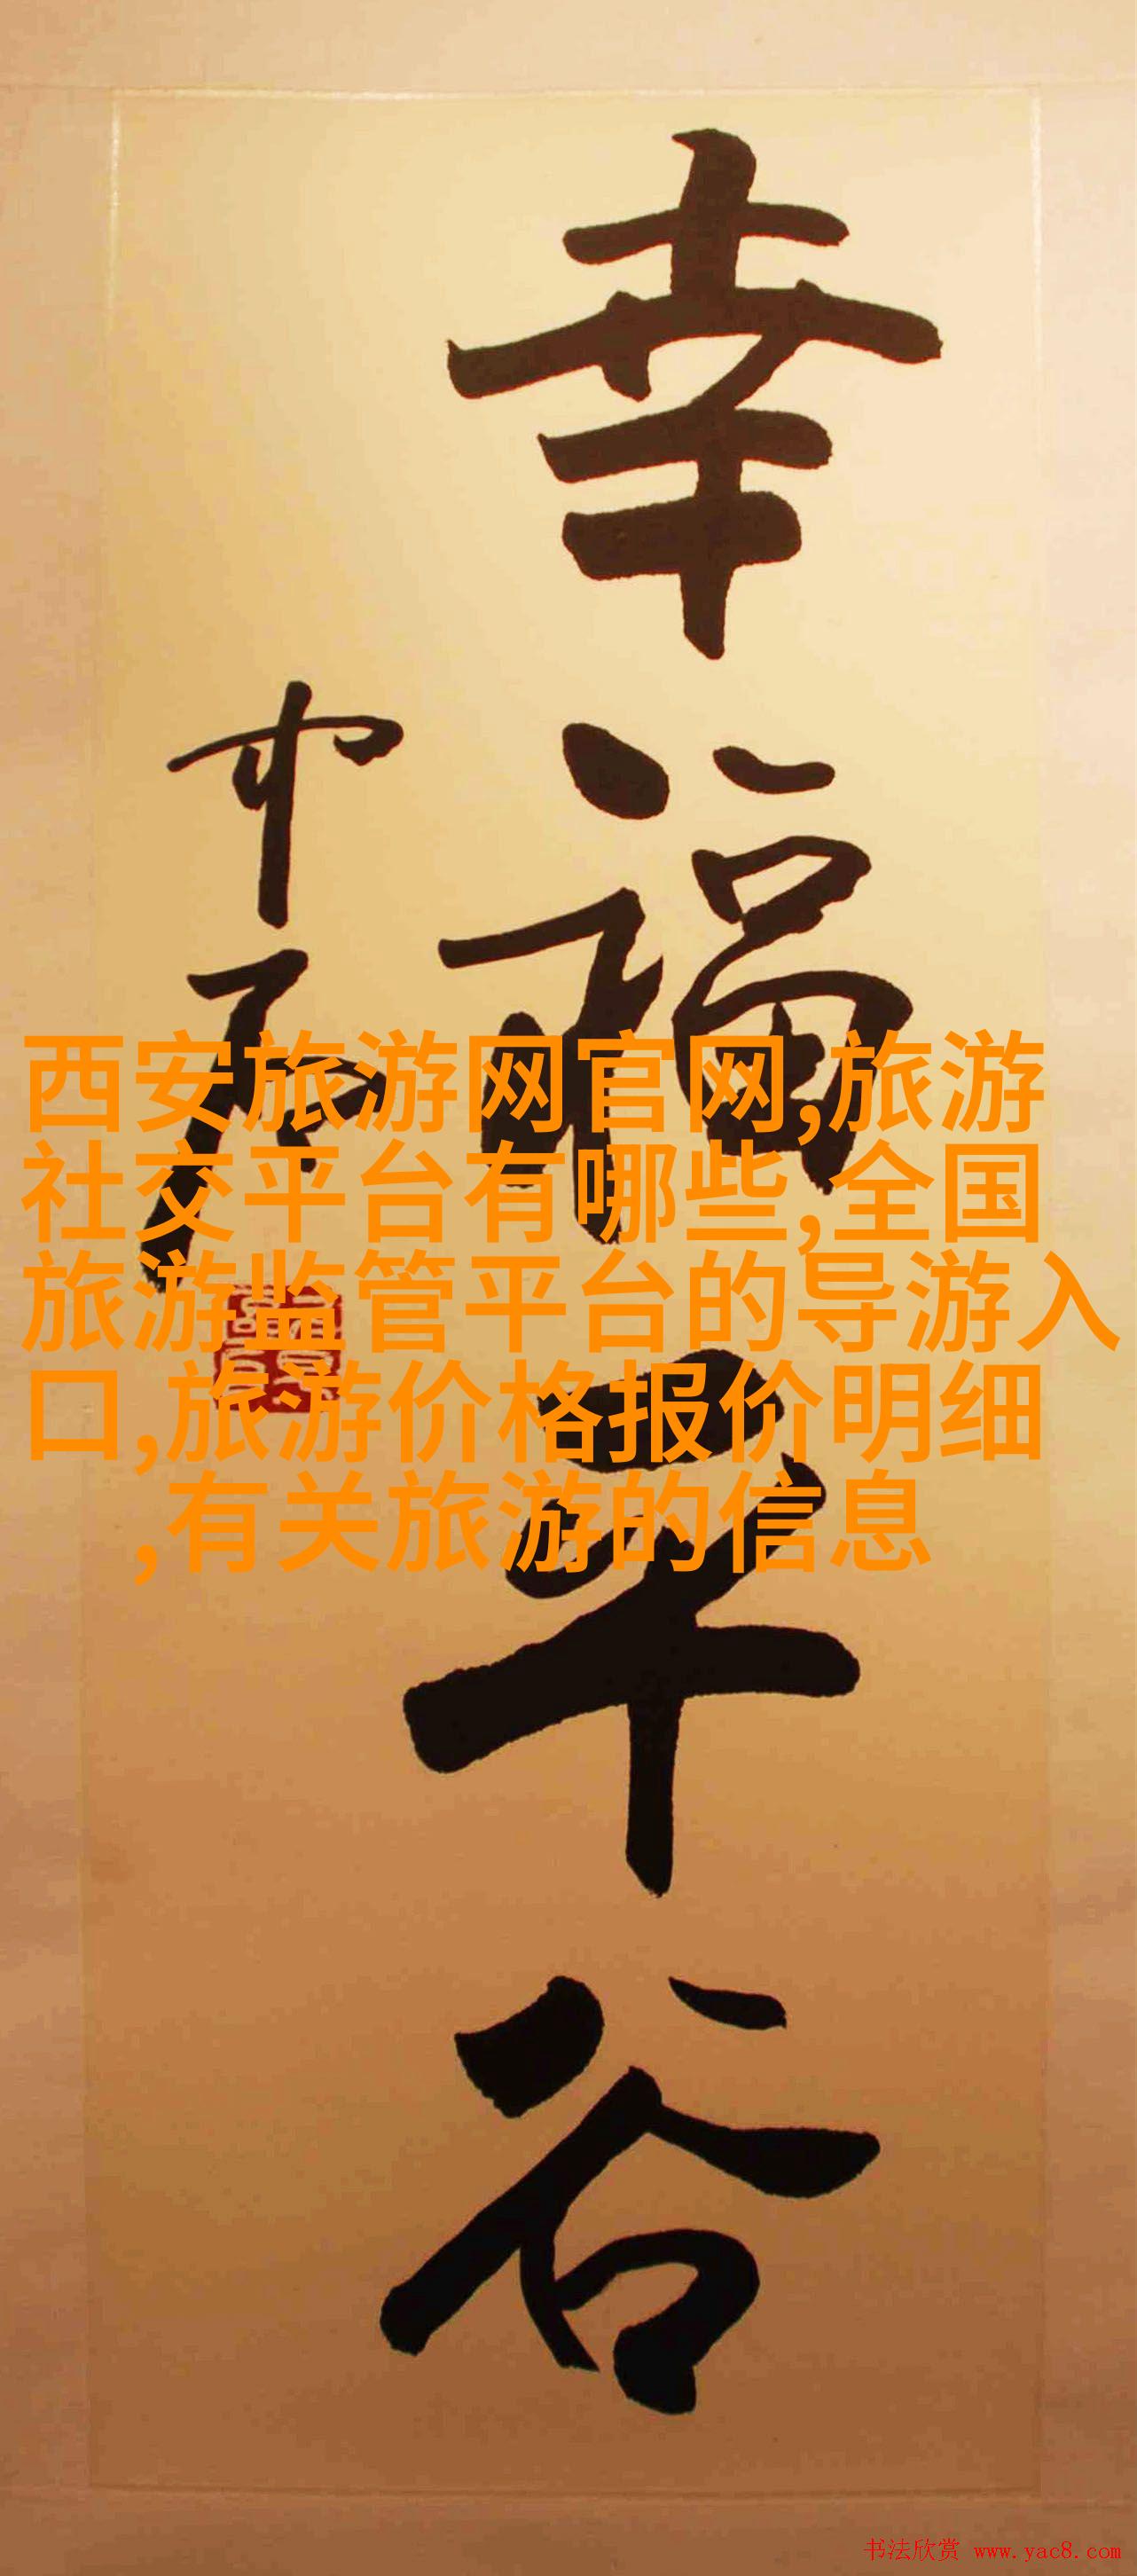 幸福平谷
西安旅游网官网,旅游
社交平台有哪些,全国
旅游监管平台的导游入
口,旅游价格报价明细
,有关旅游的信息
书法欣赏 www.yac8.com